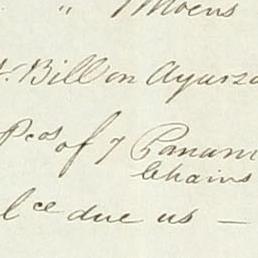 " Moens
Bill on Ayarza
Pcos of 7 Panam
Chains
lce due us —